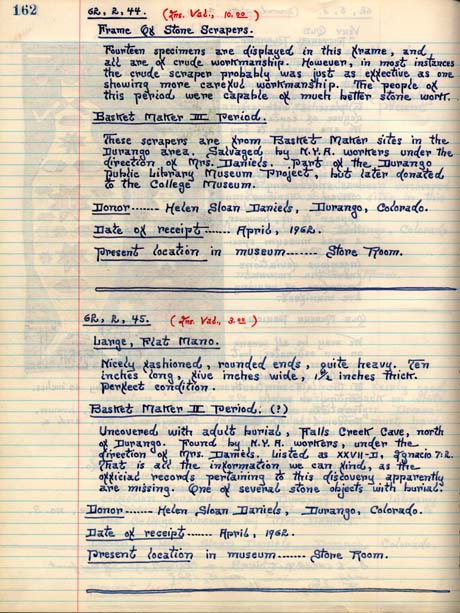 162
62, 2, 44. (Ins. Val., 10.00)
Frame Of Stone Scrapers.
Fourteen specimens are displayed in this frame, and
all are of crude workmanship. However, in most instances
the crude scraper probably was just as effective as one
showing more careful workmanship. The people of
this period were capable of much better stone work.
Basket Maker III Period.
These scrapers are from Basket Maker sites in the
Durango area. Salvaged by N.Y.A. workers under the
direction of Mrs. Daniels. Part of the Durango
Public Library Museum Project, but later donated
to the College Museum.
Donor------- Helen Sloan Daniels, Durango, Colorado.
Date of receipt------ April, 1962.
Present location in museum------- Store Room.
62, 2, 45. (Ins. Val., 3.00)
Large, Flat Mano.
Nicely fashioned, rounded ends, quite heavy. Ten
inches long, five inches wide, 1½ inches thick.
Perfect condition.
Basket Maker II Period. (?)
Uncovered with adult burial, Falls Creek Cave, north
of Durango. Found by N.Y.A. workers, under the
direction of Mrs. Daniels. Listed as XXVII-D, Ignacio 7:2.
That is all the information we can find, as the
official records pertaining to this discovery apparently
are missing. One of several stone objects with burial.
Donor------- Helen Sloan Daniels, Durango, Colorado.
Date of receipt------ April, 1962.
Present location in museum------ Store Room.